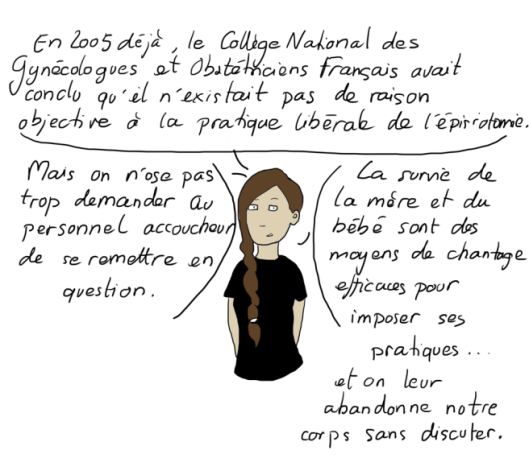 En 2005 déjà, le Collège National des
Gynécologues et Obstétriciens Français avait
conclu qu'il n'existait pas de raison
objective à la pratique libérale de l'épisiotomie.
Mais on n'ose pas
trop demander au
personnel accoucheur
de se remettre en
question.
La survie de
la mère et du
bébé sont des
moyens de chantage
efficaces pour
imposer ses
pratiques...
et on leur
abandonne notre
corps sans discuter.